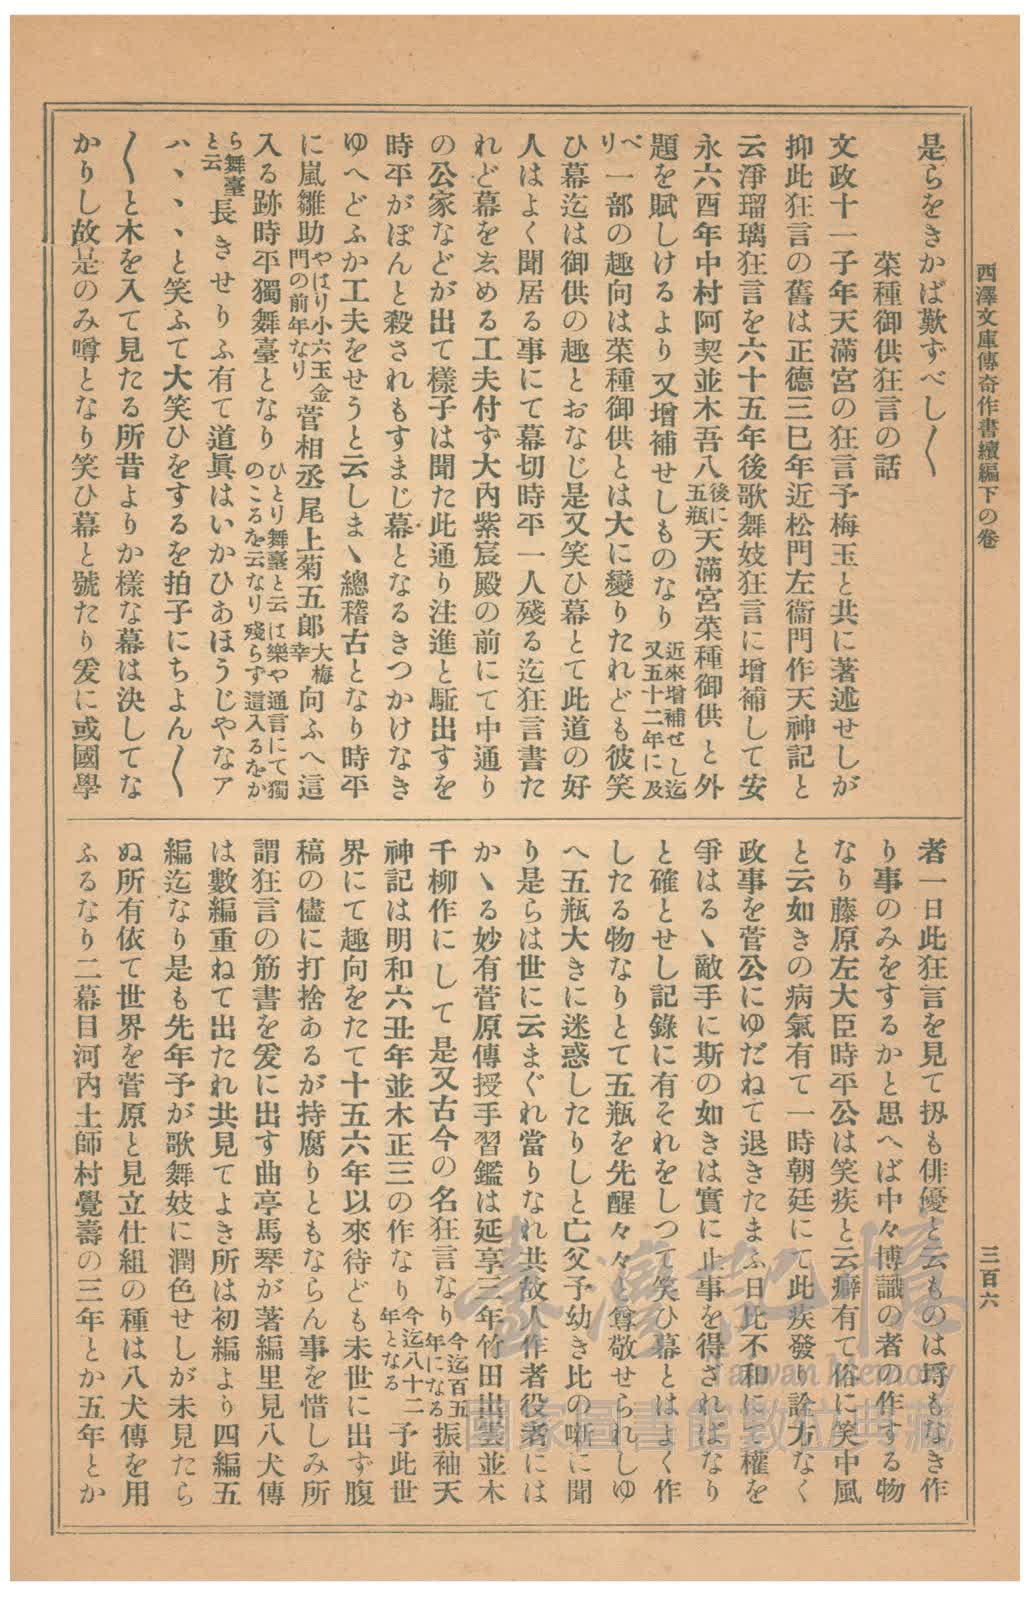 西澤文庫傳奇作書續編下の卷
三百六
是らをきかば歎ずべし〱
菜種御供狂言の話
文政十一子年天滿宮の狂言予梅玉と共に著述せしが
抑此狂言の舊は正德三巳年近松門左衞門作天神記と
云淨瑠璃狂言を六十五年後歌舞妓狂言に增補して安
永六酉年中村阿契並木吾八後に五瓶天滿宮菜種御供と外
題を賦しけるより又增補せしものなり近來增補せし迄又五十二年に及
べり一部の趣向は菜種御供とは大に變りたれども彼笑
ひ幕迄は御供の趣とおなじ是又笑ひ幕とて此道の好
人はよく聞居る事にて幕切時平一人殘る迄狂言書た
れど幕をゑめる工夫付ず大內紫宸殿の前にて中通り
の公家などが出て樣子は聞た此通り注進と駈出すを
時平がぽんと殺されもすまじ幕となるきつかけなき
ゆへどふか工夫をせうと云しまゝ總稽古となり時平
に嵐雛助やはり小六玉金門の前年なり菅相丞尾上菊五郎大梅幸向ふへ這
入る跡時平獨舞臺となりひとり舞臺と云は樂や通言にて獨のこるを云なり殘らず這入るをか
ら舞臺と云長きせりふ有て道眞はいかひあほうじやなア
ハ、、、と笑ふて大笑ひをするを拍子にちよん〱
〱と木を入て見たる所昔よりか樣な幕は決してな
かりし故是のみ噂となり笑ひ幕と號たり爰に或國學
者一日此狂言を見て扨も俳優と云ものは埓もなき作
り事のみをするかと思へば中々博識の者の作する物
なり藤原左大臣時平公は笑疾と云癖有て俗に笑中風
と云如きの病氣有て一時朝廷にて此疾發り詮方なく
政事を菅公にゆだねて退きたまふ日比不和にて權を
爭はるゝ敵手に斯の如きは實に止事を得ざればなり
と確とせし記錄に有それをしつて笑ひ幕とはよく作
したる物なりとて五瓶を先醒々々と尊敬せられしゆ
へ五瓶大きに迷惑したりしと亡父予幼き比の噺に聞
り是らは世に云まぐれ當りなれ共故人作者役者には
かゝる妙有菅原傳授手習鑑は延享三年竹田出雲並木
千柳作にして是又古今の名狂言なり今迄百五年になる振袖天
神記は明和六丑年並木正三の作なり今迄八十二年となる予此世
界にて趣向をたて十五六年以來待ども未世に出ず腹
稿の儘に打捨あるが持腐りともならん事を惜しみ所
謂狂言の筋書を爰に出す曲亭馬琴が著編里見八犬傳
は數編重ねて出たれ共見てよき所は初編より四編五
編迄なり是も先年予が歌舞妓に潤色せしが未見たら
ぬ所有依て世界を菅原と見立仕組の種は八犬傳を用
ふるなり二幕目河內土師村覺壽の三年とか五年とか
臺灣記憶
Taiwan Memory
國家圖書館數位典藏